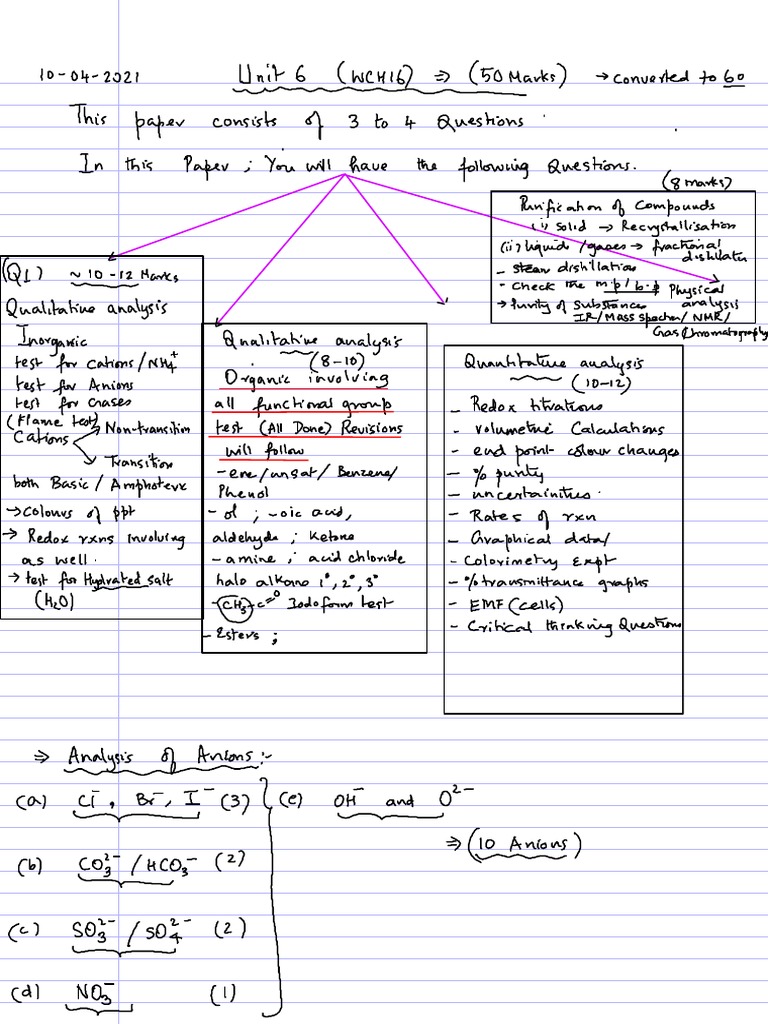 10-04-2021 Unit 6 (WCH16) ⇒ (50 Marks) → converted to 60
This paper consists of 3 to 4 Questions.
In this Paper ; You will have the following Questions.
(8 marks)
Purification of Compounds
(i) Solid → Recrystallisation
(ii) liquid /gases → fractional
distillatn
- steam distillation
- Check the m.p/b.p
→ Purity of Substances
Physical
analysis
IR/Mass specter/NMR/
Gas Chromatography
(Q1) ~10-12 Marks
Qualitative analysis
Inorganic
test for cations/NH₄⁺
test for Anions
test for Gases
(Flame test)
Cations → Non-transition
→ Transition
both Basic/Amphoteric
→ Colours of ppt
→ Redox rxns involving
as well.
→ test for Hydrated salt
(H₂O)
Qualitative analysis
(8-10)
Organic involving
all functional group
test (All Done) Revisions
will follow
- ene/unsat/Benzene/
Phenol
- ol ; -oic acid,
aldehyde ; Ketone
- amine ; acid chloride
halo alkane 1°, 2°, 3°
- CH₃-C=O Iodoform test
- Esters ;
Quantitative analysis
(10-12)
- Redox titrations
- volumetric Calculations
- end point colour changes
- % purity
- uncertainities.
- Rates of rxn
- Graphical data/
- Colorimetry Expt
- % transmittance graphs
- EMF (cells)
- Critical thinking Questions
⇒ Analysis of Anions:-
(a) Cl⁻, Br⁻, I⁻ (3) (e) OH⁻ and O²⁻
⇒ (10 Anions)
(b) CO₃²⁻ / HCO₃⁻ (2)
(c) SO₃²⁻ / SO₄²⁻ (2)
(d) NO₃⁻ (1)